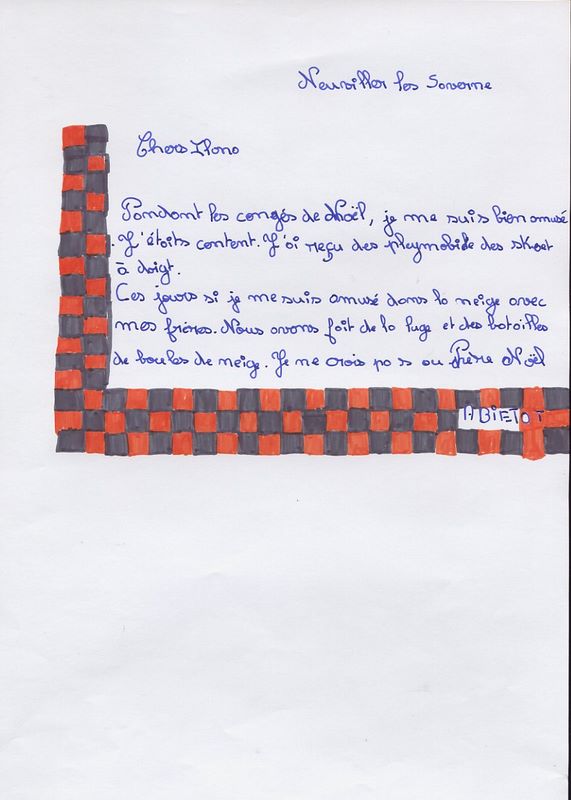 Neuviller les Saverne
Chers Ilono
Pendant les congés de Noël, je me suis bien amusé
J'étaits content. J'ai reçu des playmobile des skeet
à doigt.
Ces jours si je me suis amusé dans la neige avec
mes frères. Nous avons fait de la luge et des batailles
de boules de neige. Je ne crois pas au Père Noël
ABIETOT